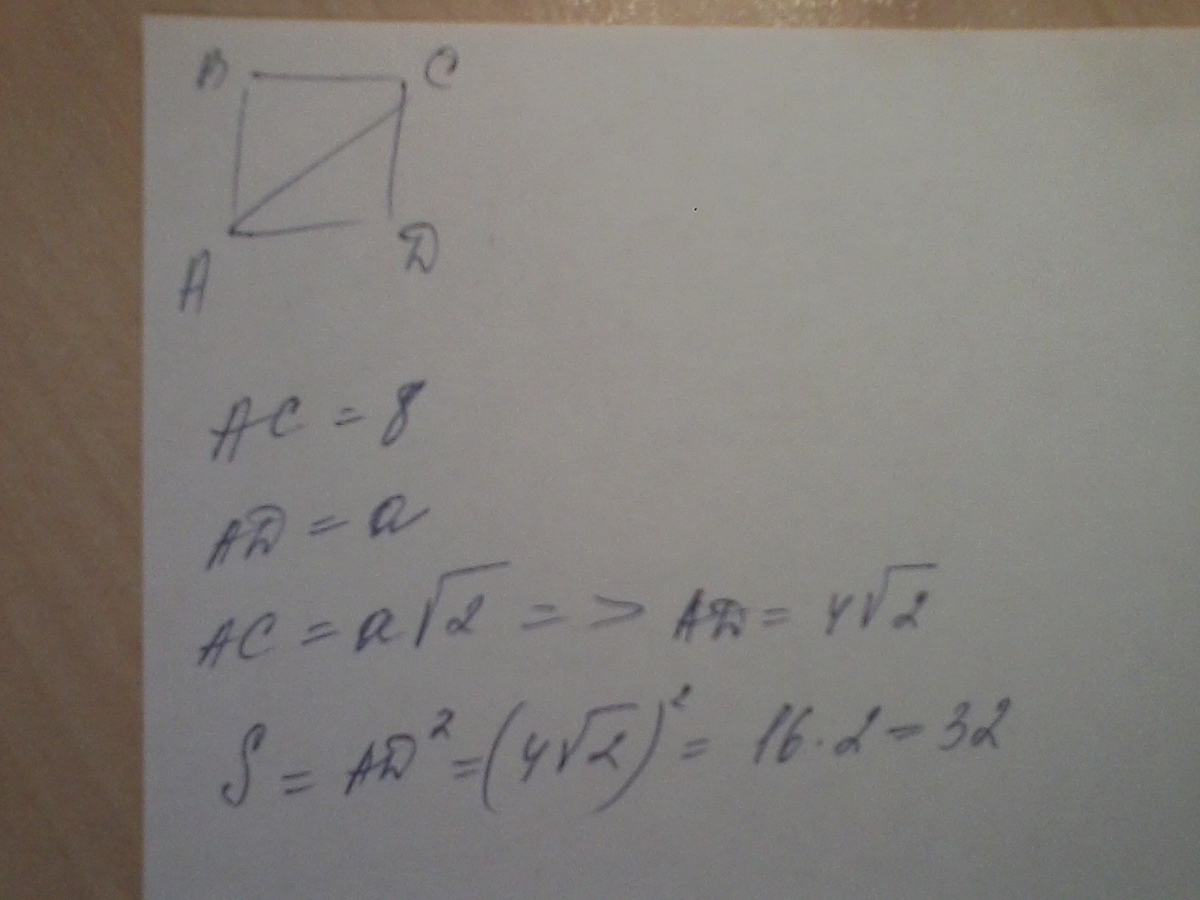 B C
A D
AC = 8
AD = a
AC = a√2 => AD = 4√2
S = AD² = (4√2)² = 16·2 = 32